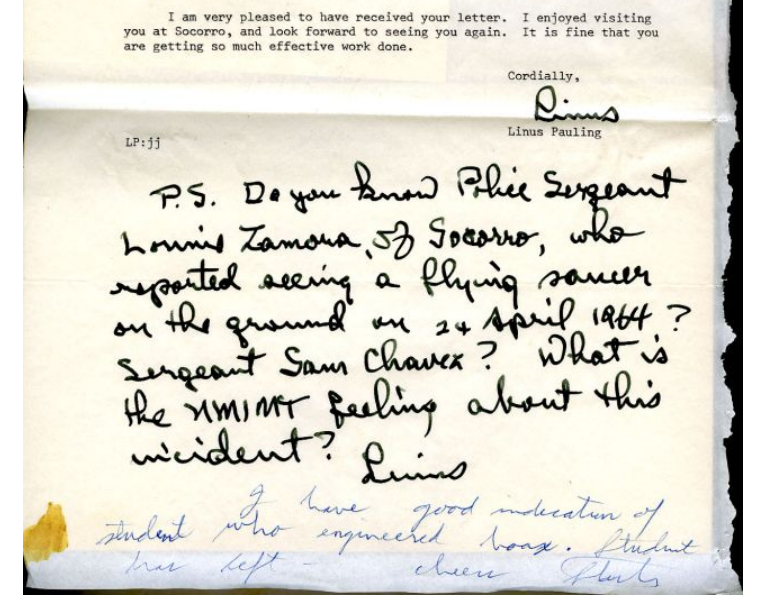 I am very pleased to have received your letter. I enjoyed visiting
you at Socorro, and look forward to seeing you again. It is fine that you
are getting so much effective work done.
Cordially,
Linus
Linus Pauling
LP:jj
P.S. Do you know Police Sergeant
Lonnie Zamora, of Socorro, who
reported seeing a flying saucer
on the ground on 24 April 1964?
Sergeant Sam Chavez? What is
the NMIMT feeling about this
incident? Linus
I have good indication of
student who engineered hoax. Student
has left -